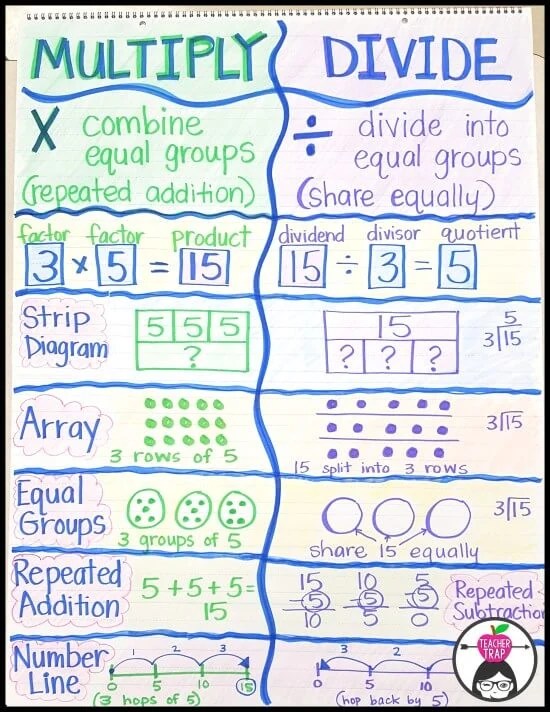 MULTIPLY
DIVIDE
X combine
equal groups
(repeated addition)
÷ divide into
equal groups
(share equally)
factor factor product
3 × 5 = 15
dividend divisor quotient
15 ÷ 3 = 5
Strip
Diagram
5 5 5
?
15
? ? ?
5
3 15
Array
3 rows of 5
15 split into 3 rows
3 15
Equal
Groups
3 groups of 5
share 15 equally
3 15
Repeated
Addition
5 + 5 + 5 =
15
15 10 5
- 5 - 5 - 5
10 5 0
Repeated
Subtraction
Number
Line
1 2 3
0 5 10 15
(3 hops of 5)
3 2
0 5 10
(hop back by 5)
TEACHER
TRAP